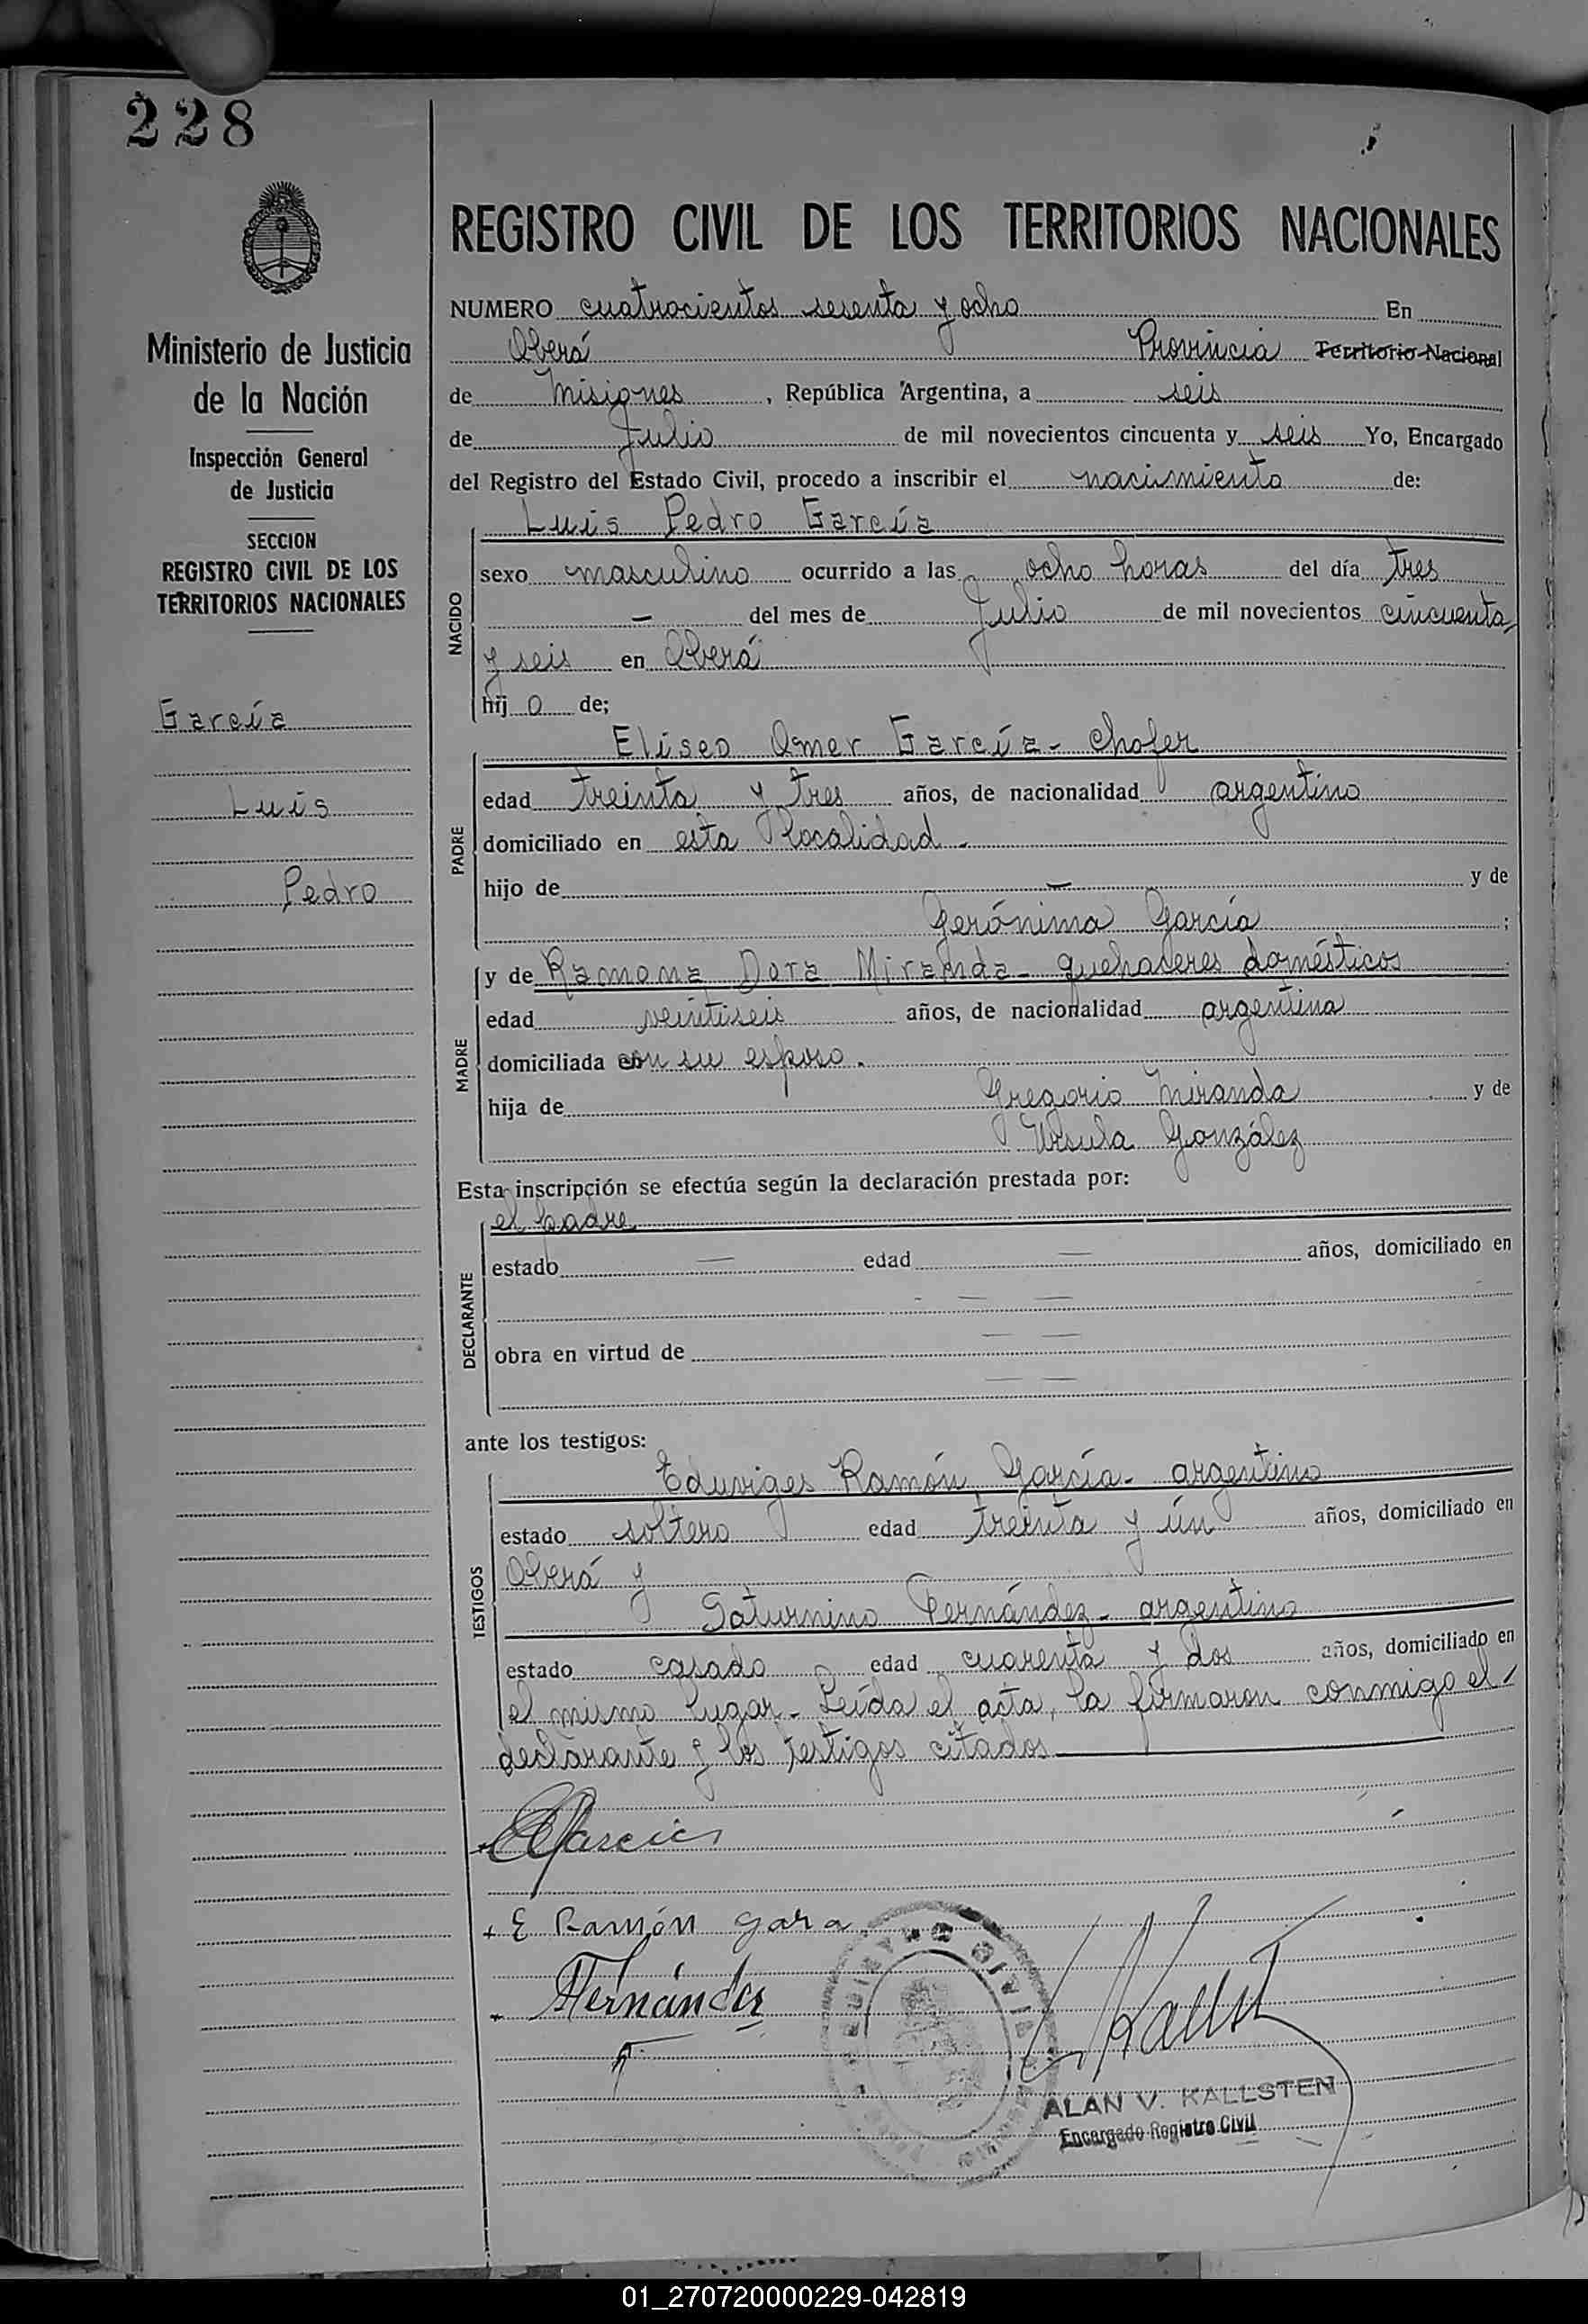 228
REGISTRO CIVIL DE LOS TERRITORIOS NACIONALES
Ministerio de Justicia
de la Nación
Inspección General
de Justicia
SECCION
REGISTRO CIVIL DE LOS
TERRITORIOS NACIONALES
García
Luis
Pedro
NUMERO cuatrocientos sesenta y ocho En
Oberá Provincia Territorio Nacional
de Misiones, República Argentina, a seis
de Julio de mil novecientos cincuenta y seis Yo, Encargado
del Registro del Estado Civil, procedo a inscribir el nacimiento de:
NACIDO
Luis Pedro García
sexo masculino ocurrido a las ocho horas del día tres
— del mes de Julio de mil novecientos cincuenta
y seis en Oberá
hij o de;
PADRE
Eliseo Omer García - Chofer
edad treinta y tres años, de nacionalidad argentino
domiciliado en esta localidad -
hijo de — y de
Gerónima García ;
MADRE
y de Ramona Dora Miranda - quehaceres domésticos
edad veintiseis años, de nacionalidad argentina
domiciliada con su esposo.
hija de Gregorio Miranda y de
Ursula González
Esta inscripción se efectúa según la declaración prestada por:
DECLARANTE
el padre
estado — edad — años, domiciliado en
— —
obra en virtud de — —
— —
ante los testigos:
TESTIGOS
Eduviges Ramón García - argentino
estado soltero edad treinta y ún años, domiciliado en
Oberá y
Saturnino Fernández - argentino
estado casado edad cuarenta y dos años, domiciliado en
el mismo lugar - Leída el acta, la firmaron conmigo el
declarante y los testigos citados
García
E Ramón
Fernández
ALAN V. KALLSTEN
Encargado Registro Civil
01_270720000229-042819